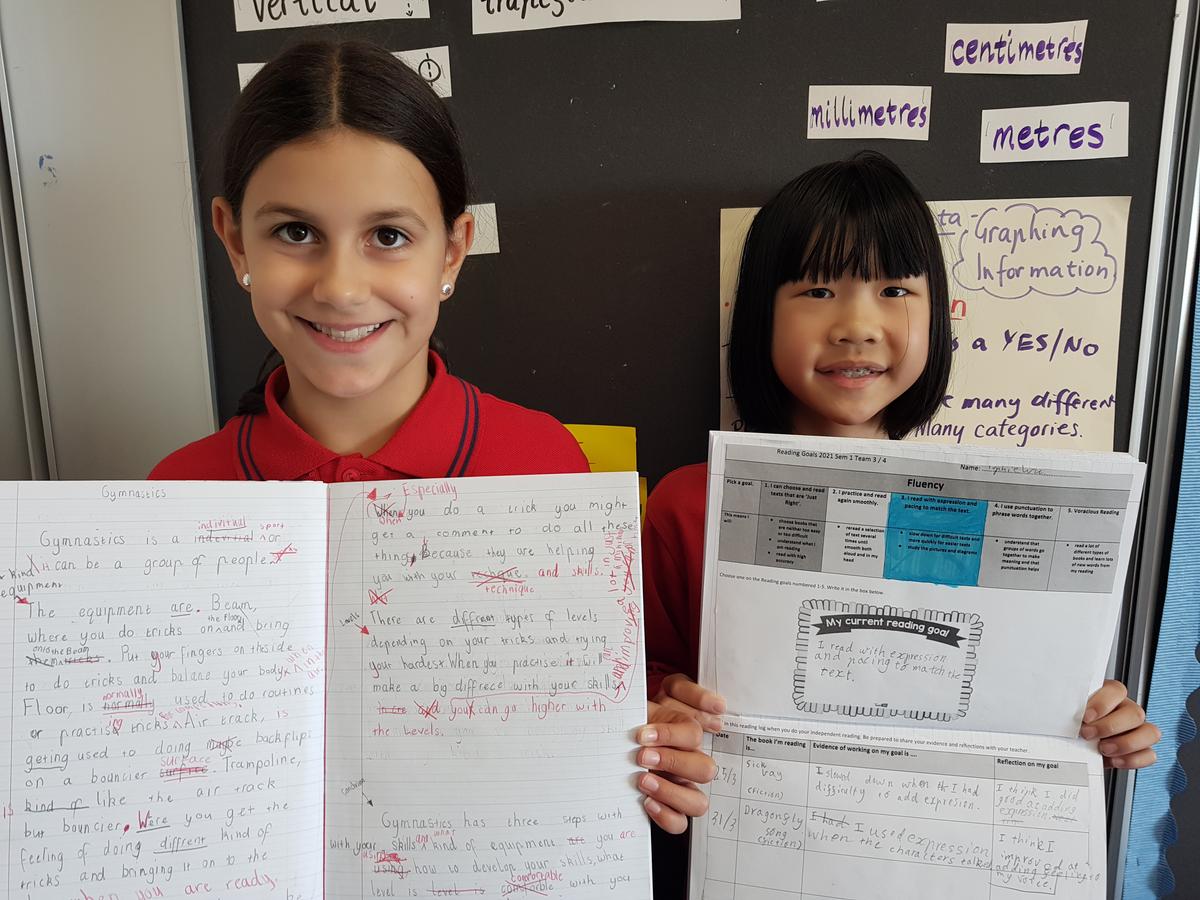 vertical
centimetres
millimetres
metres
Graphing
Information
a YES/NO
many different
Many categories.
Gymnastics
Gymnastics is a individual sport or
it can be a group of people.
equipment
The equipment are. Beam,
where you do tricks on the Floor and bring
onto the Beam
them tricks. Put your fingers on the side
to do tricks and balance your body
Floor, is normally normally used to do routines
or practise tricks Air track, is
getting used to doing backflips
on a bouncier surface Trampoline,
kind of like the air track
but bouncier. Were you get the
feeling of doing diffrent kind of
tricks and bringing it on to the
when you are ready.
Especially
When you do a trick you might
get a comment to do all these
things, because they are helping
you with your technique and skills.
There are diffrent types of levels
depending on your tricks and trying
your hardest. When you practise it will
make a big diffrece with your skills
and you can go higher with
the Levels.
Gymnastics has three steps with
with your skills and what kind of equipment are you are
using how to develop your skills, what
level is level is comfortable with you
Reading Goals 2021 Sem 1 Team 3 / 4
Name:
Fluency
Pick a goal.
1. I can choose and read texts that are 'Just Right'.
2. I practice and read again smoothly.
3. I read with expression and pacing to match the text.
4. I use punctuation to phrase words together.
5. Voracious Reading
This means I will:
choose books that are neither too easy or too difficult
understand what I am reading
read with high accuracy
reread a selection of text several times until smooth both aloud and in my head
slow down for difficult texts and more quickly for easier texts
study the pictures and diagrams
understand that groups of words go together to make meaning and that punctuation helps
read a lot of different types of books and learn lots of new words from my reading
Choose one on the Reading goals numbered 1-5. Write it in the box below.
My current reading goal
I read with expression
and pacing to match the
text.
in this reading log when you do your independent reading. Be prepared to share your evidence and reflections with your teacher.
Date
The book I'm reading is...
Evidence of working on my goal is ....
Reflection on my goal
25/3
Sick bay
(fiction)
I slowed down when I had
difficulty to add expresion.
I think I did
good at adding
expression.
31/3
Dragonfly
song
(fiction)
I had I used expression
when the characters talked
I think I
improved at
adding feeling to
my voice.